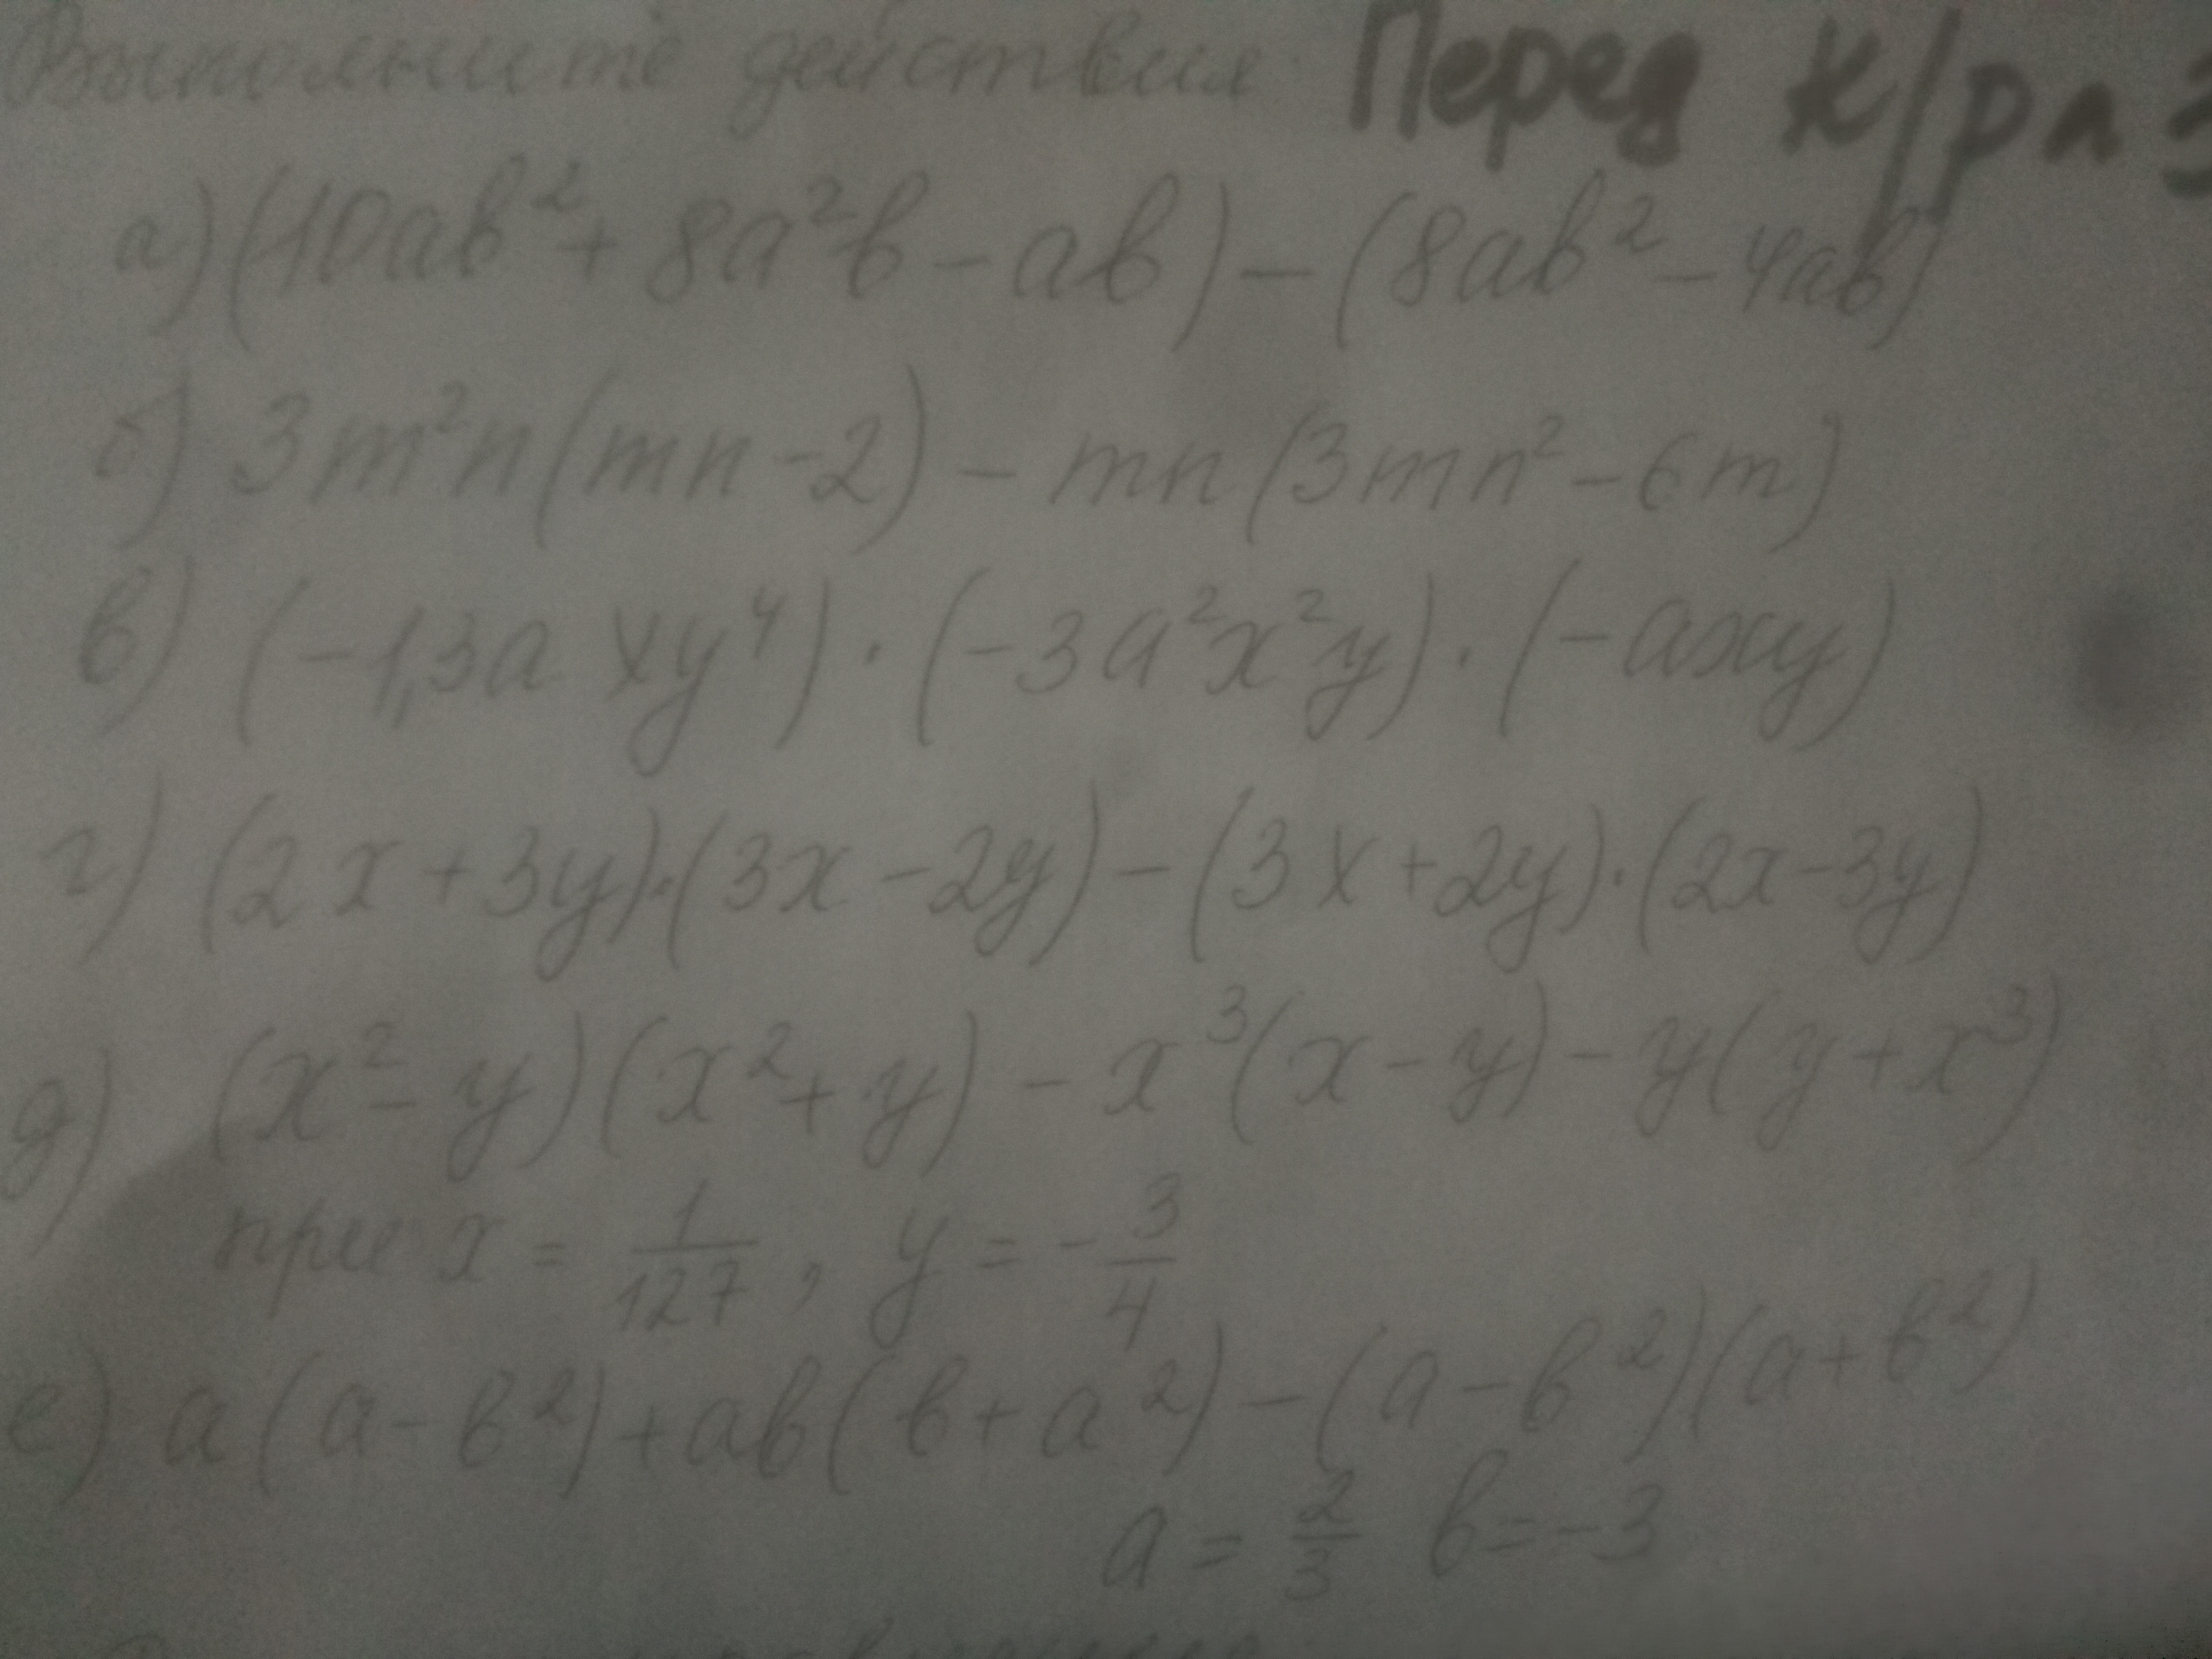 Выполните действия: Перед к/р п 3
а) (10ab² + 8a²b - ab) - (8ab² - 4ab)
б) 3m²n(mn - 2) - mn(3mn² - 6m)
в) (-1,3axy⁴) · (-3a²x²y) · (-axy)
г) (2x + 3y)·(3x - 2y) - (3x + 2y)·(2x - 3y)
д) (x² - y)(x² + y) - x³(x - y) - y(y + x³)
при x = 1/127, y = -3/4
е) a(a - b²) + ab(b + a²) - (a - b²)(a + b²)
a = 2/3 b = -3